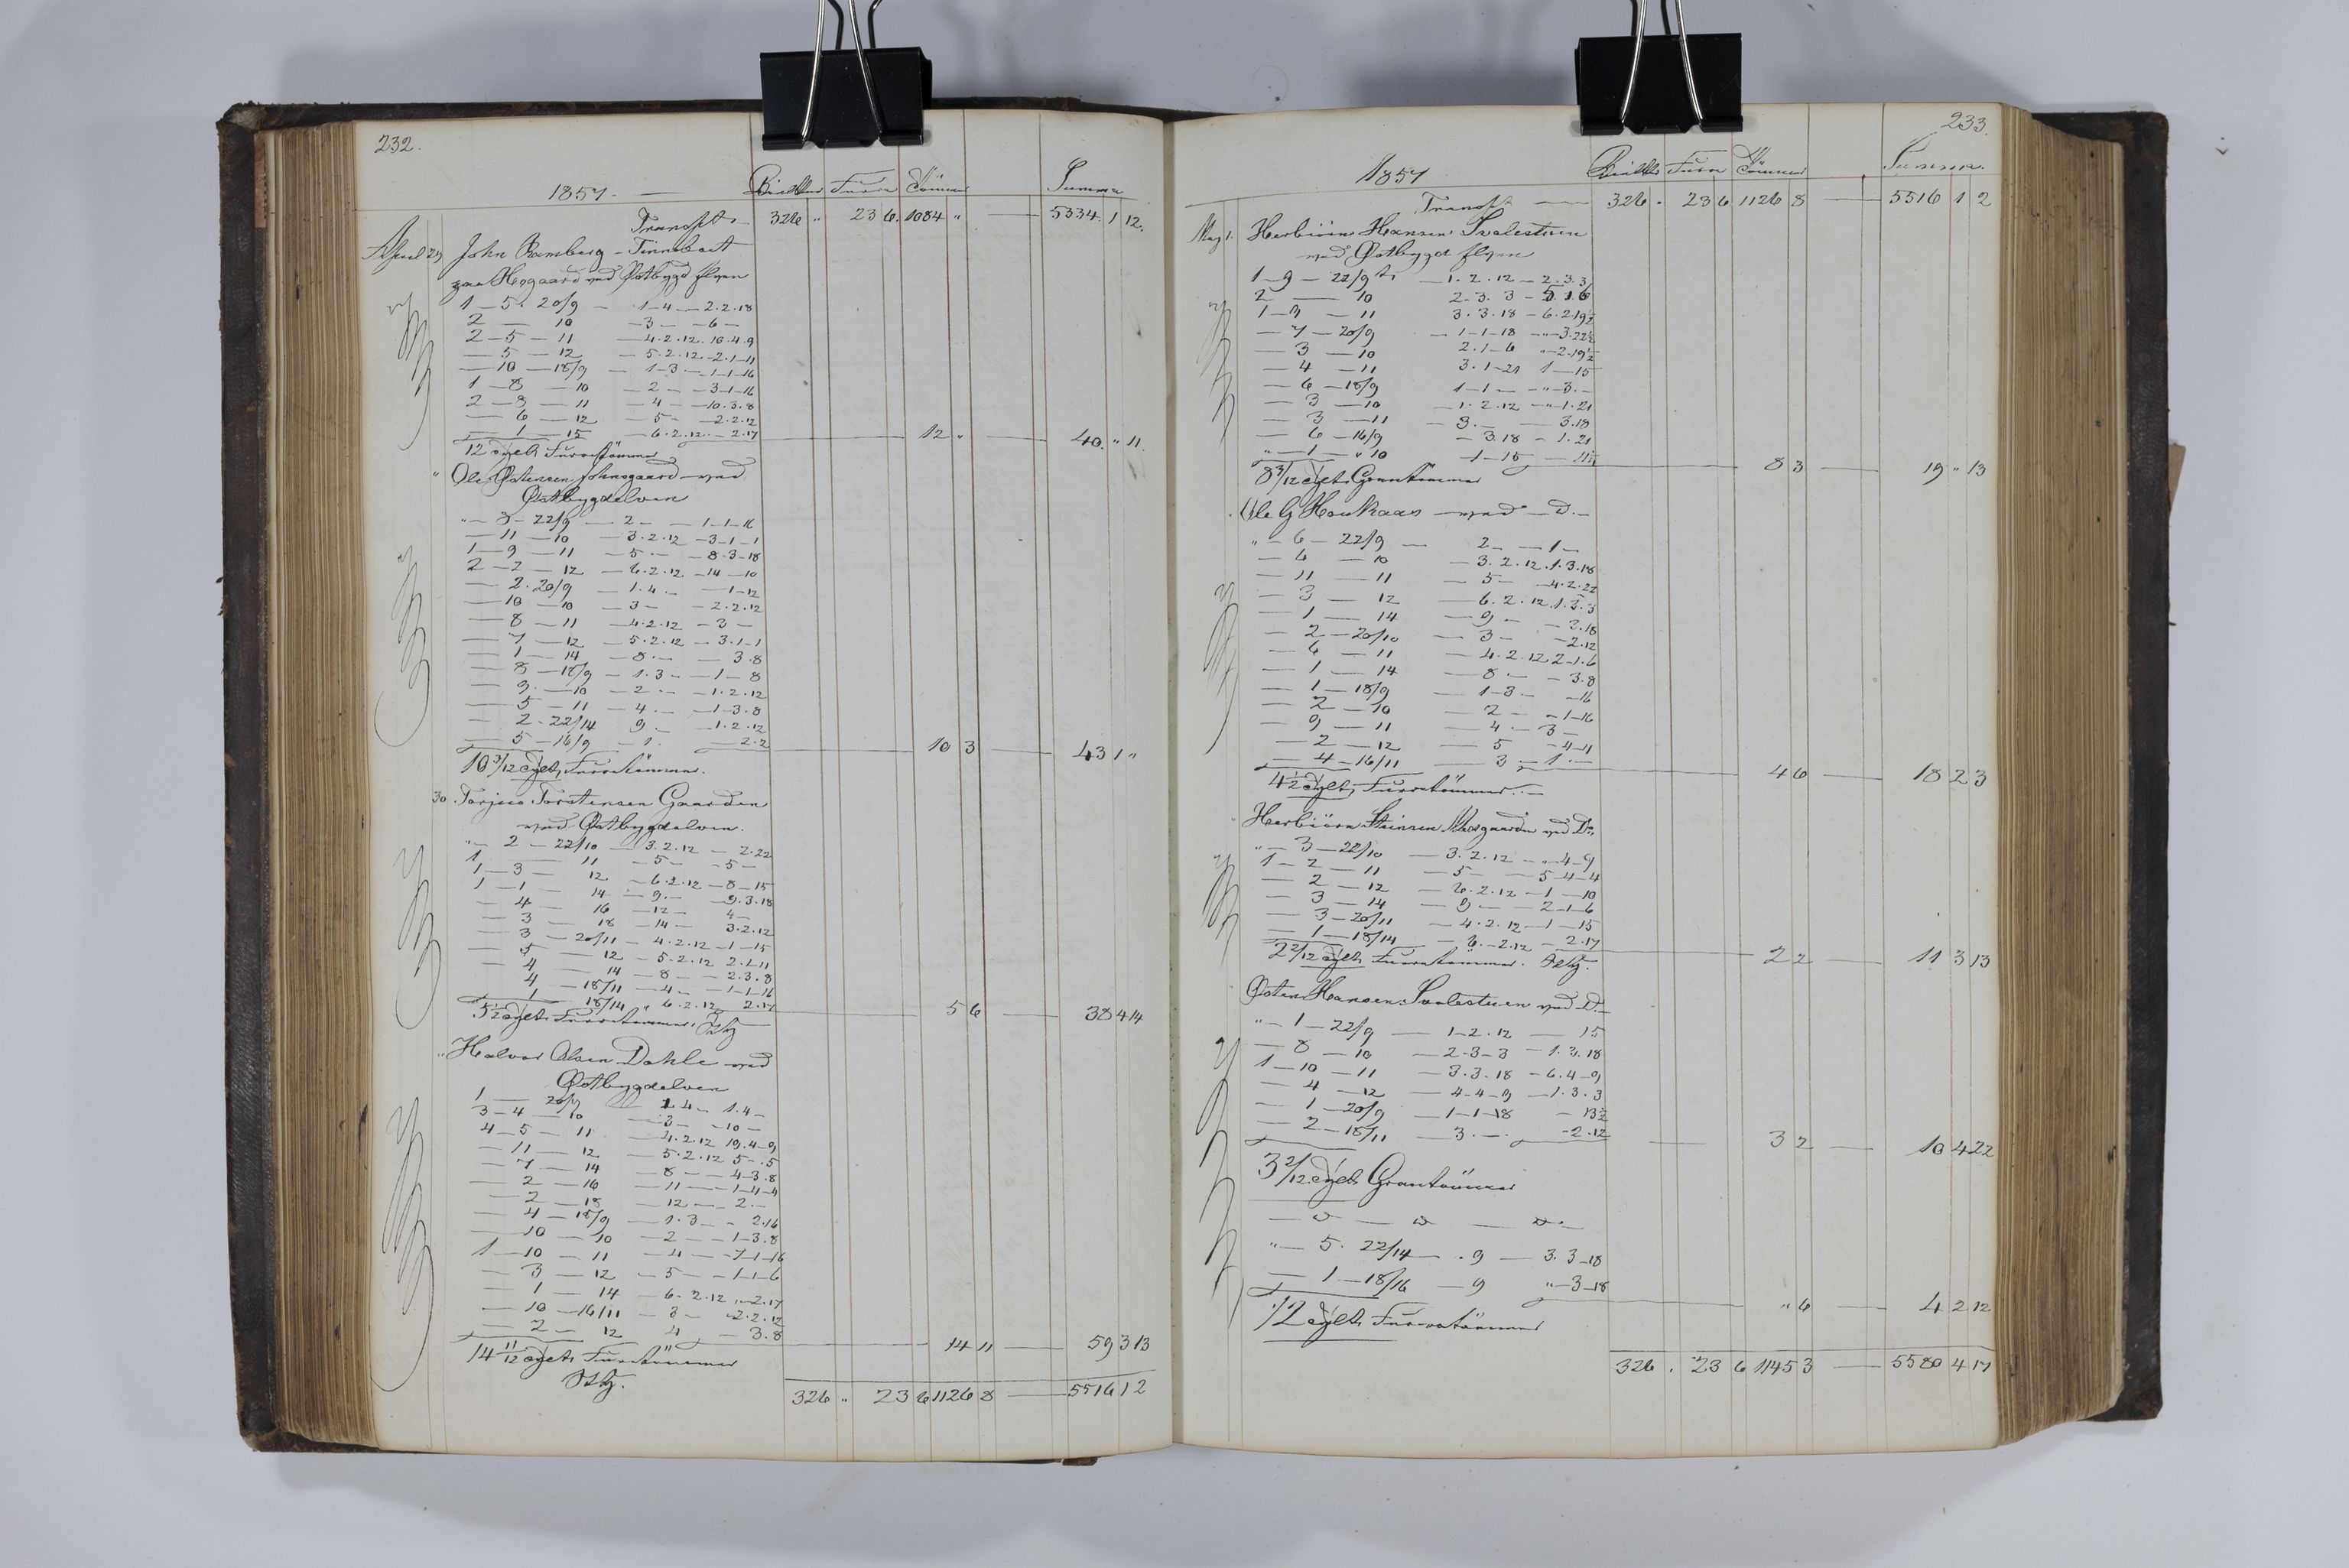 232.
1857 — Bielker Furu Tömmer Summa
Transpt 326 " 23 6. 1084 " — 5334. 1 12.
April 29 John Ramberg - Tinnebaet
paa Haagaard ved Østbygd Elven
1 — 5 . 20/9 — 1-4 — 2.2.18
2 — 10 — 3 — - 6 —
2 - 5 — 11 — 4.2.12. 10.4.9
— 5 — 12 — 5.2.12 - 2.1-11
— 10 — 18/9 — 1-3 — 1-1-16
1 — 8 — 10 — 2 — - 3-1-16
2 — 9 — 11 — 4 — - 10.3.8
— 6 — 12 — 5 - — 2.2.12
— 1 — 15 — 6.2.12. — 2.17
12 " — 40. " 11.
12 Tylt Furutömmer
" Ole Østensen Johnsgaard ved
Østbygdelven
" — 3 - 22/9 — 2 — — 1-1-16
— 11 — 10 — 3.2.12 - 3-1-1
1 — 9 — 11 — 5 — - 8.3-18
2 — 2 — 12 — 6.2.12 - 14 - 10
— 2. 20/9 — 1.4. — — 1-12
— 10 — 10 — 3 — - 2.2.12
— 8 — 11 — 4.2.12 - 3 —
— 7 — 12 — 5.2.12 — 3.1-1
— 1 — 14 — 8. — — 3.8
— 8 — 18/9 — 1.3 — - 1 - 8
— 9. — 10 — 2 — - 1.2.12
— 5 — 11 — 4. — - 1-3.8
— 2 . 22/14 9. — - 1.2.12
— 5 — 16/9 — 1. — 2.2
10 3 — 43 1 "
10 3/12 Tylt Furutömmer.
30. Torjus Torstensen Gaarden
ved Østbygdelven.
" — 2 — 22/10 — 3.2.12 — 2.22
1 — 11 — 5 — - 5 —
1 — 3 — 12 — 6.2.12 — 8 — 15
1 — 1 — 14 — 9. — - 9.3.18
— 4 — 16 — 12 — 4 —
— 3 — 18 — 14 — 3.2.12
— 3 — 20/11 — 4.2.12 - 1 - 15
— 5 — 12 — 5.2.12 2.2.11
— 4 — 14 — 8 — - 2.3.8
— 4 — 18/11 — 4 — - 1-1-16
— 1 18/14 " 6.2.12 2.17
5 6 — 38 4 14
5 1/2 Tylt Furutömmer.
" Halvor Olsen Dahle ved
Østbygdelven
1 — 20/9 — 1.4 — 1.4 —
3 — 4 — 10 — 3 — - 10 —
4 — 5 — 11 — 4.2.12 19.4-9
— 11 — 12 — 5.2.12 5 - .5
— 7 — 14 — 8 — - 4-3.8
— 2 — 16 — 11 — - 1-4-4
— 2 — 18 — 12 — - 2 —
— 4 — 18/9 — 1.3 — - 2.16
— 10 — 10 — 2 — - 1-3.8
1 — 10 — 11 — 4 — - 7-1-16
— 3 — 12 — 5 — - 1-1-6
— 1 — 14 — 6.2.12 " - 2.17
— 10 — 16/11 — 3 — - 2.2.12
— 2 — 12 4 — 3.8
14 11 — 59 3 13
14 11/12 Tylt Furutömmer
326 " 23 6 1126 8 — 5516 1 2
233.
1857 Bielker Furu Tömmer Summa.
Transpt — 326 . 23 6 1126 8 — 5516 1 2
May 1. Herbiörn Hansen Svalestuen
ved Østbygd Elven
1 — 9 — 22/9 — 1.2.12 — 2.3.3
2 — 10 2.3.3 — 5.1.6
1 — 9 — 11 3.3.18 — 6.2.19 1/2
— 7 — 20/9 — 1-1-18 " - 3.22 1/2
— 3 — 10 2.1-6 " - 2.19 1/2
— 4 — 11 3.1-21 1 — 15
— 6 — 18/9 1-1 — - " - 3. —
— 3 — 10 — 1.2.12 — " - 1.21
— 3 — 11 — 3. — — 3.18
— 6 — 16/9 — 3.18 — 1.21
" — 1 — " 10 1-15
8 3 — 19 " 13
8 3/12 Tylt Grantömmer
Ole G Haukaas — ved — D. —
" — 6 — 22/9 — 2 — — 1 —
— 6 — 10 — 3.2.12. 1.3.18
— 11 — 11 — 5 — — 4.2.22
— 3 — 12 — 6.2.12. 1.3.3
— 1 — 14 — 9 — — 3.18
— 2 — 20/10 — 3 — - 2.12
— 6 — 11 — 4.2.12. 2-1.6
— 1 — 14 — 8 — — 3.8
— 1 — 18/9 — 1-3 — - 16
— 2 — 10 — 2 — - 1-16
— 9 — 11 — 4 — 3 —
— 2 — 12 — 5 - 4-11
— 4 — 16/11 — 3 — 1. —
4 6 — 18 2 3
4 1/2 Tylt Furutömmer. —
Herbiörn Steinsen Moesgaarden ved Do.
" — 3 — 22/10 — 3.2.12 — " - 4-9
1 — 2 — 11 — 5 — 5-4-4
— 2 — 12 — 6.2.12 — 1 — 10
— 3 — 14 — 9 — - 2-1-6
— 3 — 20/11 — 4.2.12 — 1 — 15
— 1 — 18/14 — 6. - 2.12 — 2.17
2 2 — 11 3 13
2 2/12 Tylt Furutömmer.
Østen Hansen Svalestuen ved D. —
" — 1 — 22/9 — 1-2.12 — 15
— 8 — 10 — 2-3-3 — 1.3.18
1 — 10 — 11 — 3.3.18 — 6.4-9
— 4 — 12 — 4-4-9 — 1.3.3
— 1 — 20/9 — 1-1-18 — 13 1/2
— 2 — 18/11 — 3. — - 2.12
3 2 — 10 4 22
3 2/12 Tylt Grantömmer
— D — D — D. —
" — 5. 22/14 — . 9 — 3.3-18
— 1 — 18/16 — 9 " - 3-18
" 6 — 4 2 12
1/2 Tylt Furutömmer
326 . 23 6 1145 3 — 5580 4 17